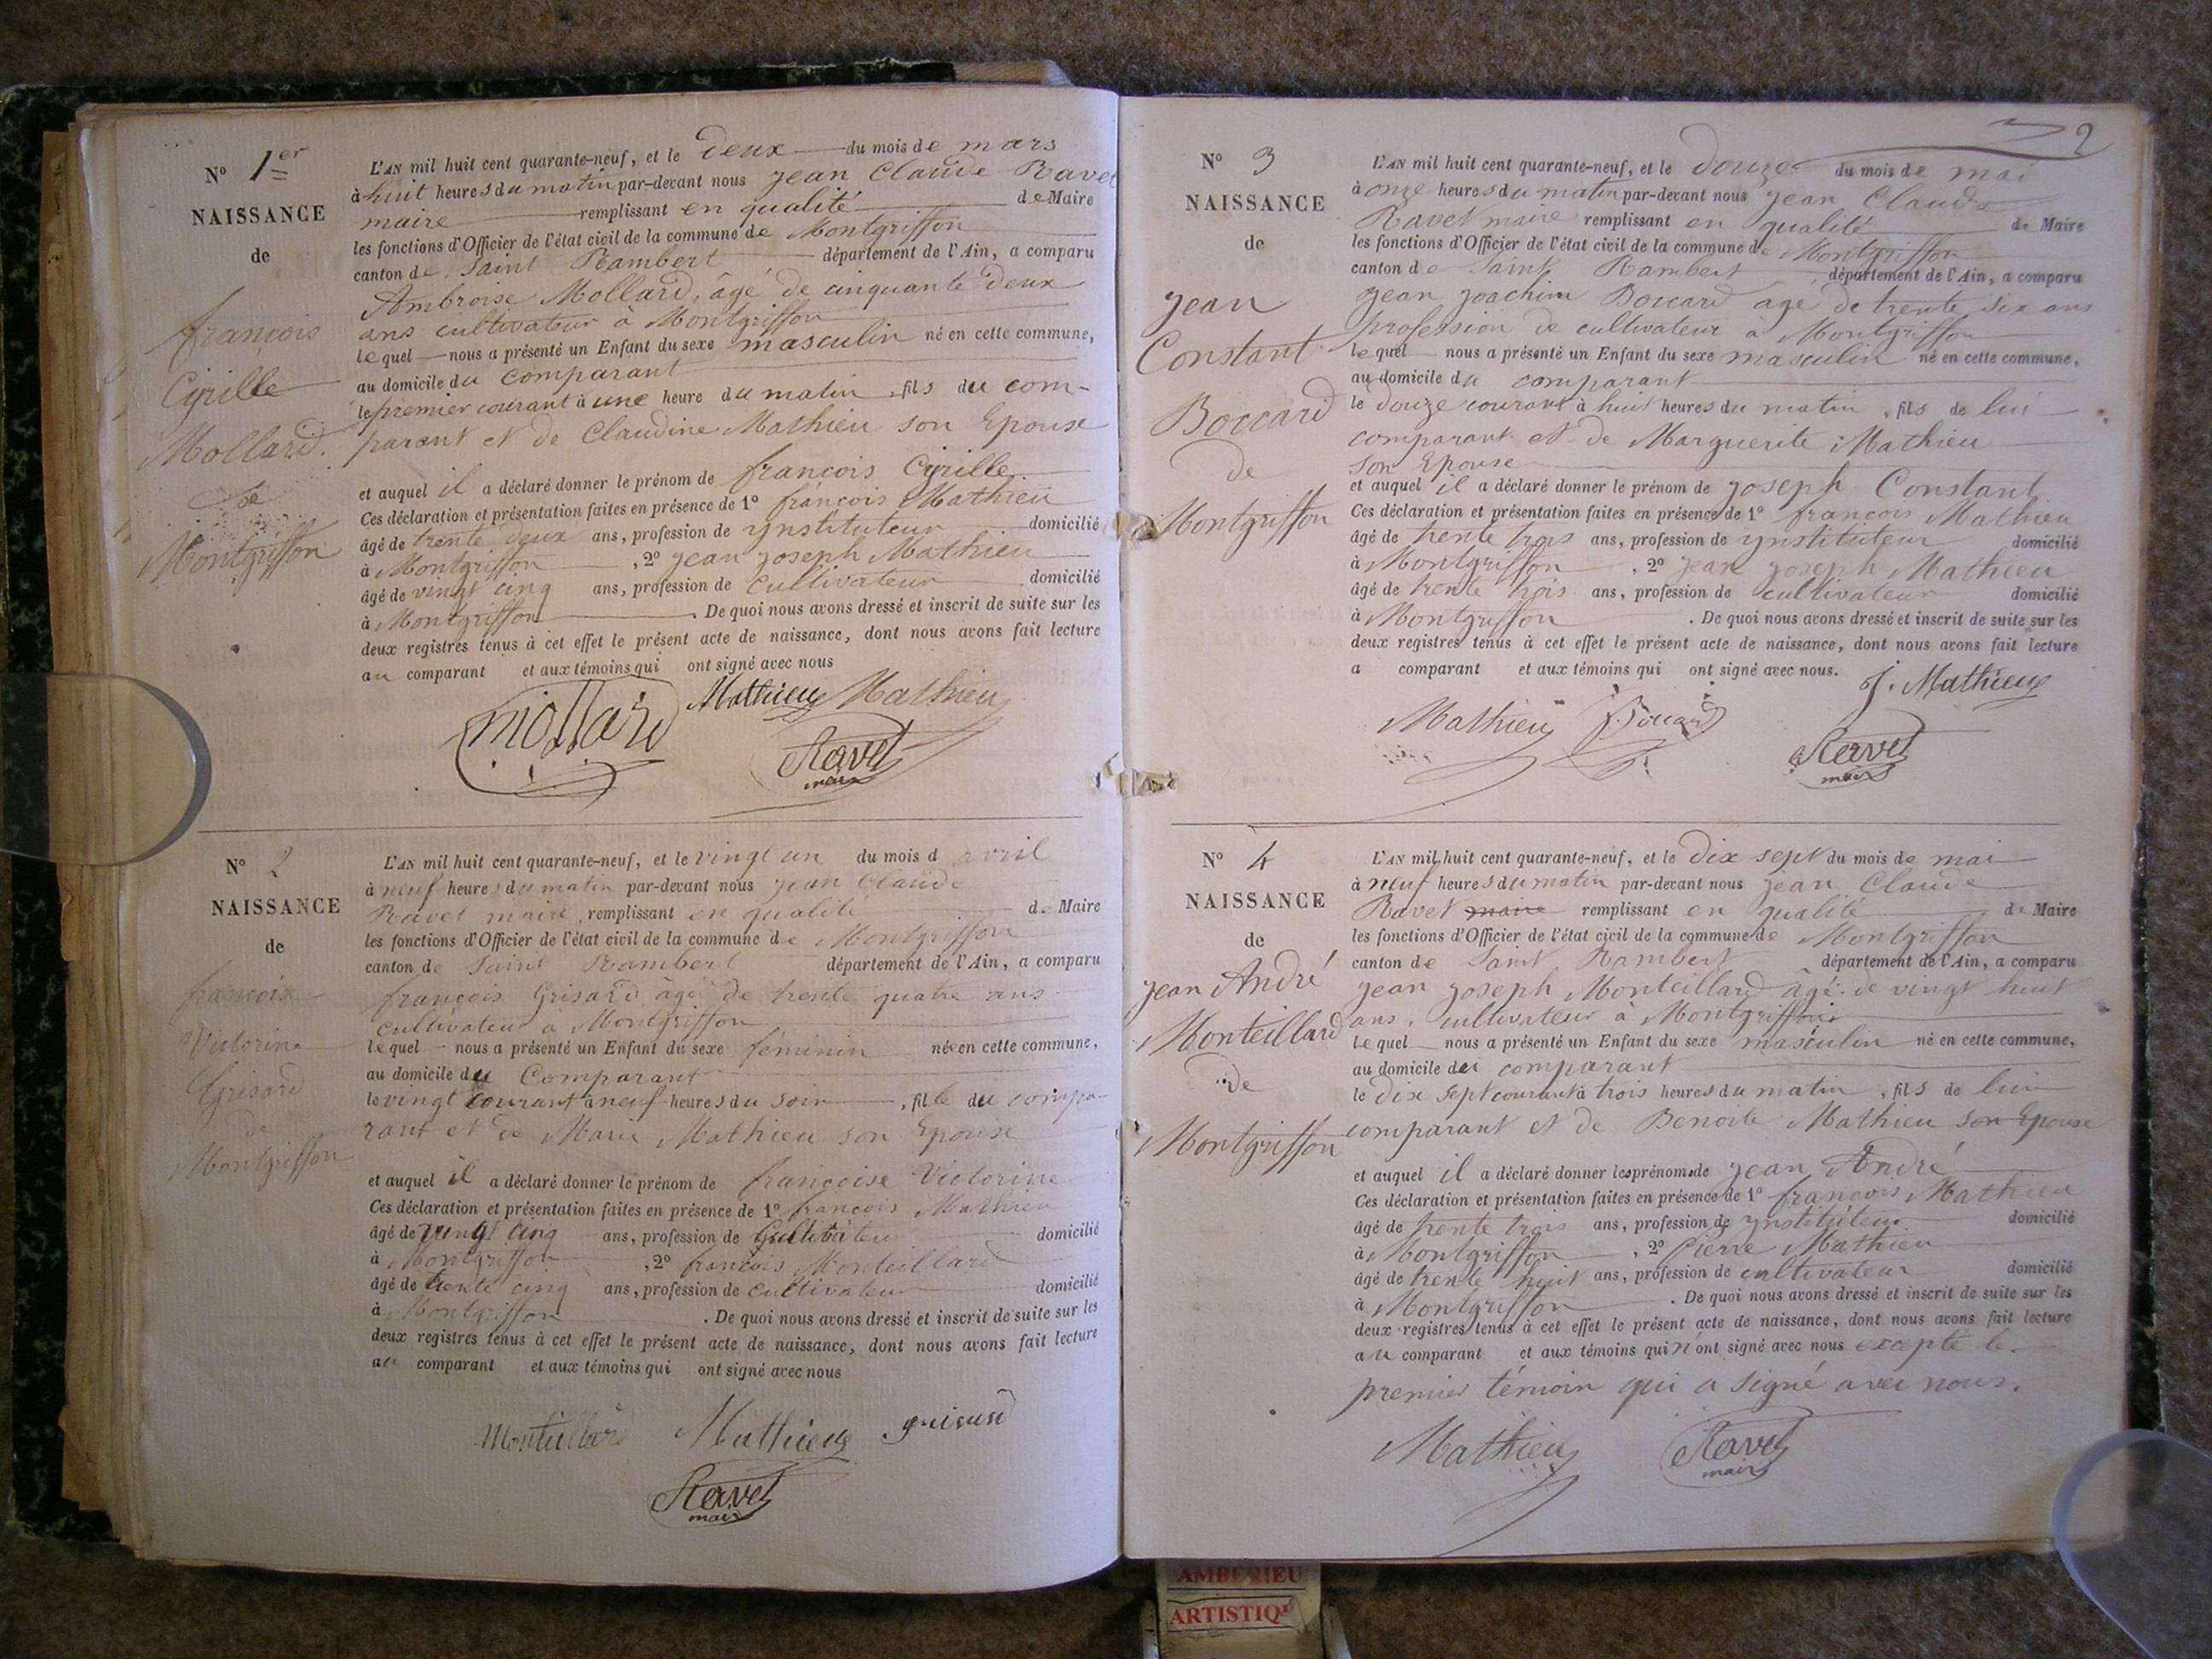 N° 1er
NAISSANCE
de
françois
Cyrille
Mollard.
de
Montgriffon
L'AN mil huit cent quarante-neuf, et le deux du mois de mars
à huit heures du matin par-devant nous jean Claude Ravet
maire remplissant en qualité de Maire
les fonctions d'Officier de l'état civil de la commune de Montgriffon
canton de Saint Rambert département de l'Ain, a comparu
Ambroise Mollard, âgé de cinquante deux
ans cultivateur à Montgriffon
lequel nous a présenté un Enfant du sexe masculin né en cette commune,
au domicile du comparant
le premier courant à une heure du matin, fils du com-
parant et de Claudine Mathieu son Epouse
et auquel il a déclaré donner le prénom de françois Cyrille
Ces déclaration et présentation faites en présence de 1° françois Mathieu
âgé de trente deux ans, profession de ynstituteur domicilié
à Montgriffon, 2° jean joseph Mathieu
âgé de vingt cinq ans, profession de cultivateur domicilié
à Montgriffon. De quoi nous avons dressé et inscrit de suite sur les
deux registres tenus à cet effet le présent acte de naissance, dont nous avons fait lecture
au comparant et aux témoins qui ont signé avec nous
Mollard Mathieu Mathieu
Ravet
maire
N° 2
NAISSANCE
de
françoise
Victorine
Grisard
de
Montgriffon
L'AN mil huit cent quarante-neuf, et le vingt un du mois d avril
à neuf heures du matin par-devant nous jean Claude
Ravet maire, remplissant en qualité de Maire
les fonctions d'Officier de l'état civil de la commune de Montgriffon
canton de Saint Rambert département de l'Ain, a comparu
françois Grisard âgé de trente quatre ans
cultivateur à Montgriffon
lequel nous a présenté un Enfant du sexe féminin née en cette commune,
au domicile du Comparant
le vingt courant à neuf heures du soir, fille du compa-
rant et de Marie Mathieu son Epouse
et auquel il a déclaré donner le prénom de françoise Victorine
Ces déclaration et présentation faites en présence de 1° françois Mathieu
âgé de vingt cinq ans, profession de Cultivateur domicilié
à Montgriffon, 2° françois Monteillard
âgé de trente cinq ans, profession de cultivateur domicilié
à Montgriffon. De quoi nous avons dressé et inscrit de suite sur les
deux registres tenus à cet effet le présent acte de naissance, dont nous avons fait lecture
au comparant et aux témoins qui ont signé avec nous
Monteillard Mathieu grisard
Ravet
maire
2
N° 3
NAISSANCE
de
jean
Constant
Boccard
de
Montgriffon
L'AN mil huit cent quarante-neuf, et le douze du mois de mai
à onze heures du matin par-devant nous jean Claude
Ravet maire remplissant en qualité de Maire
les fonctions d'Officier de l'état civil de la commune de Montgriffon
canton de Saint Rambert département de l'Ain, a comparu
jean joachim Boccard âgé de trente six ans
profession de cultivateur à Montgriffon
lequel nous a présenté un Enfant du sexe masculin né en cette commune,
au domicile du comparant
le douze courant à huit heures du matin, fils de lui
comparant et de Marguerite Mathieu
son Epouse
et auquel il a déclaré donner le prénom de joseph Constant
Ces déclaration et présentation faites en présence de 1° françois Mathieu
âgé de trente trois ans, profession de ynstituteur domicilié
à Montgriffon, 2° jean joseph Mathieu
âgé de trente trois ans, profession de cultivateur domicilié
à Montgriffon. De quoi nous avons dressé et inscrit de suite sur les
deux registres tenus à cet effet le présent acte de naissance, dont nous avons fait lecture
a comparant et aux témoins qui ont signé avec nous.
J. Mathieu
Mathieu
Ravet
maire
N° 4
NAISSANCE
de
jean André
Monteillard
de
Montgriffon
L'AN mil huit cent quarante-neuf, et le dix sept du mois de mai
à neuf heures du matin par-devant nous jean Claude
Ravet maire remplissant en qualité de Maire
les fonctions d'Officier de l'état civil de la commune de Montgriffon
canton de Saint Rambert département de l'Ain, a comparu
jean joseph Monteillard âgé de vingt huit
ans, cultivateur à Montgriffon
lequel nous a présenté un Enfant du sexe masculin né en cette commune,
au domicile du comparant
le dix sept courant à trois heures du matin, fils de lui
comparant et de Benoite Mathieu son Epouse
et auquel il a déclaré donner les prénoms de jean André
Ces déclaration et présentation faites en présence de 1° françois Mathieu
âgé de trente trois ans, profession de ynstituteur domicilié
à Montgriffon, 2° Pierre Mathieu
âgé de trente huit ans, profession de cultivateur domicilié
à Montgriffon. De quoi nous avons dressé et inscrit de suite sur les
deux registres tenus à cet effet le présent acte de naissance, dont nous avons fait lecture
au comparant et aux témoins qui n'ont signé avec nous excepté le
premier témoin qui a signé avec nous.
Mathieu
Ravet
maire
AMBERIEU
ARTISTIQ